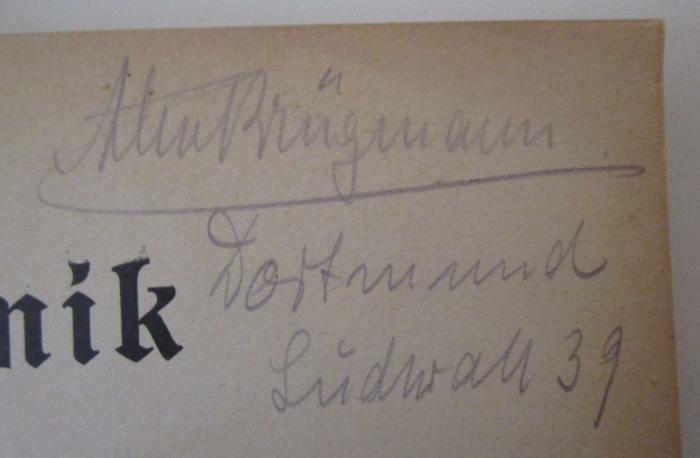 Brügmann
Dortmund
nik
Südwall 39